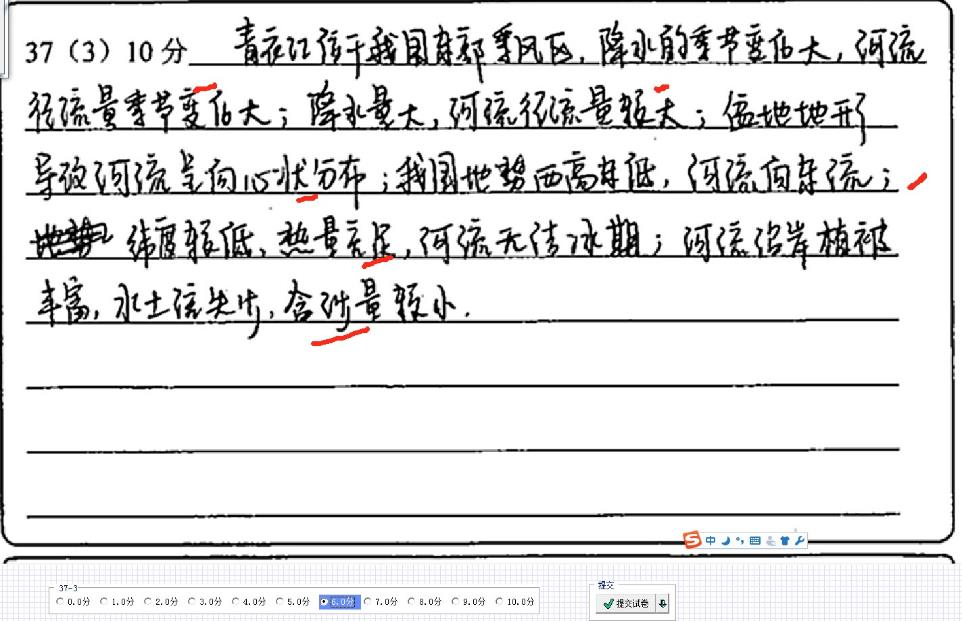 37（3）10分 青衣江位于我国东部季风区，降水的季节变化大，河流
径流量季节变化大；降水量大，河流径流量较大；盆地地形
导致河流呈向心状分布；我国地势西高东低，河流向东流；
纬度较低，热量充足，河流无结冰期；河流沿岸植被
丰富，水土流失少，含沙量较小.
中
37-3
0.0分 1.0分 2.0分 3.0分 4.0分 5.0分 6.0分 7.0分 8.0分 9.0分 10.0分
提交
提交试卷